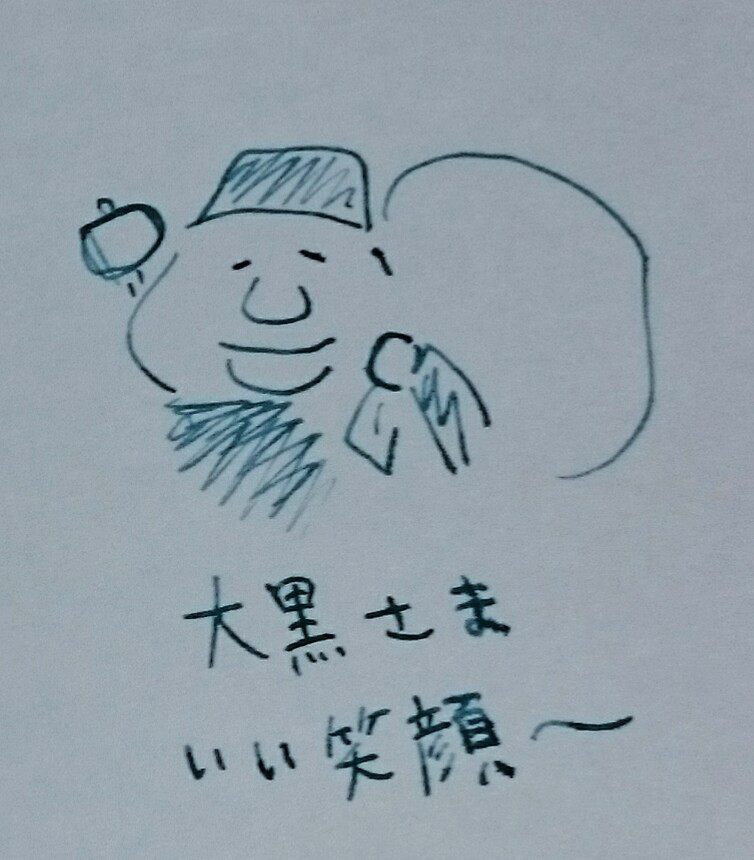 大黒さま
いい笑顔〜